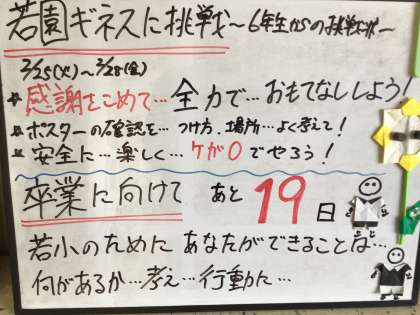 若園ギネスに挑戦〜6年生からの挑戦状〜
2/25(火)〜2/28(金)
★感謝をこめて…全力で…おもてなししよう!
★ポスターの確認を…つけ方、場所…よく考えて!
★安全に…楽しく…ケガ0でやろう!
卒業に向けて あと19日
若小のために あなたができることは…
何があるか…考え…行動に…